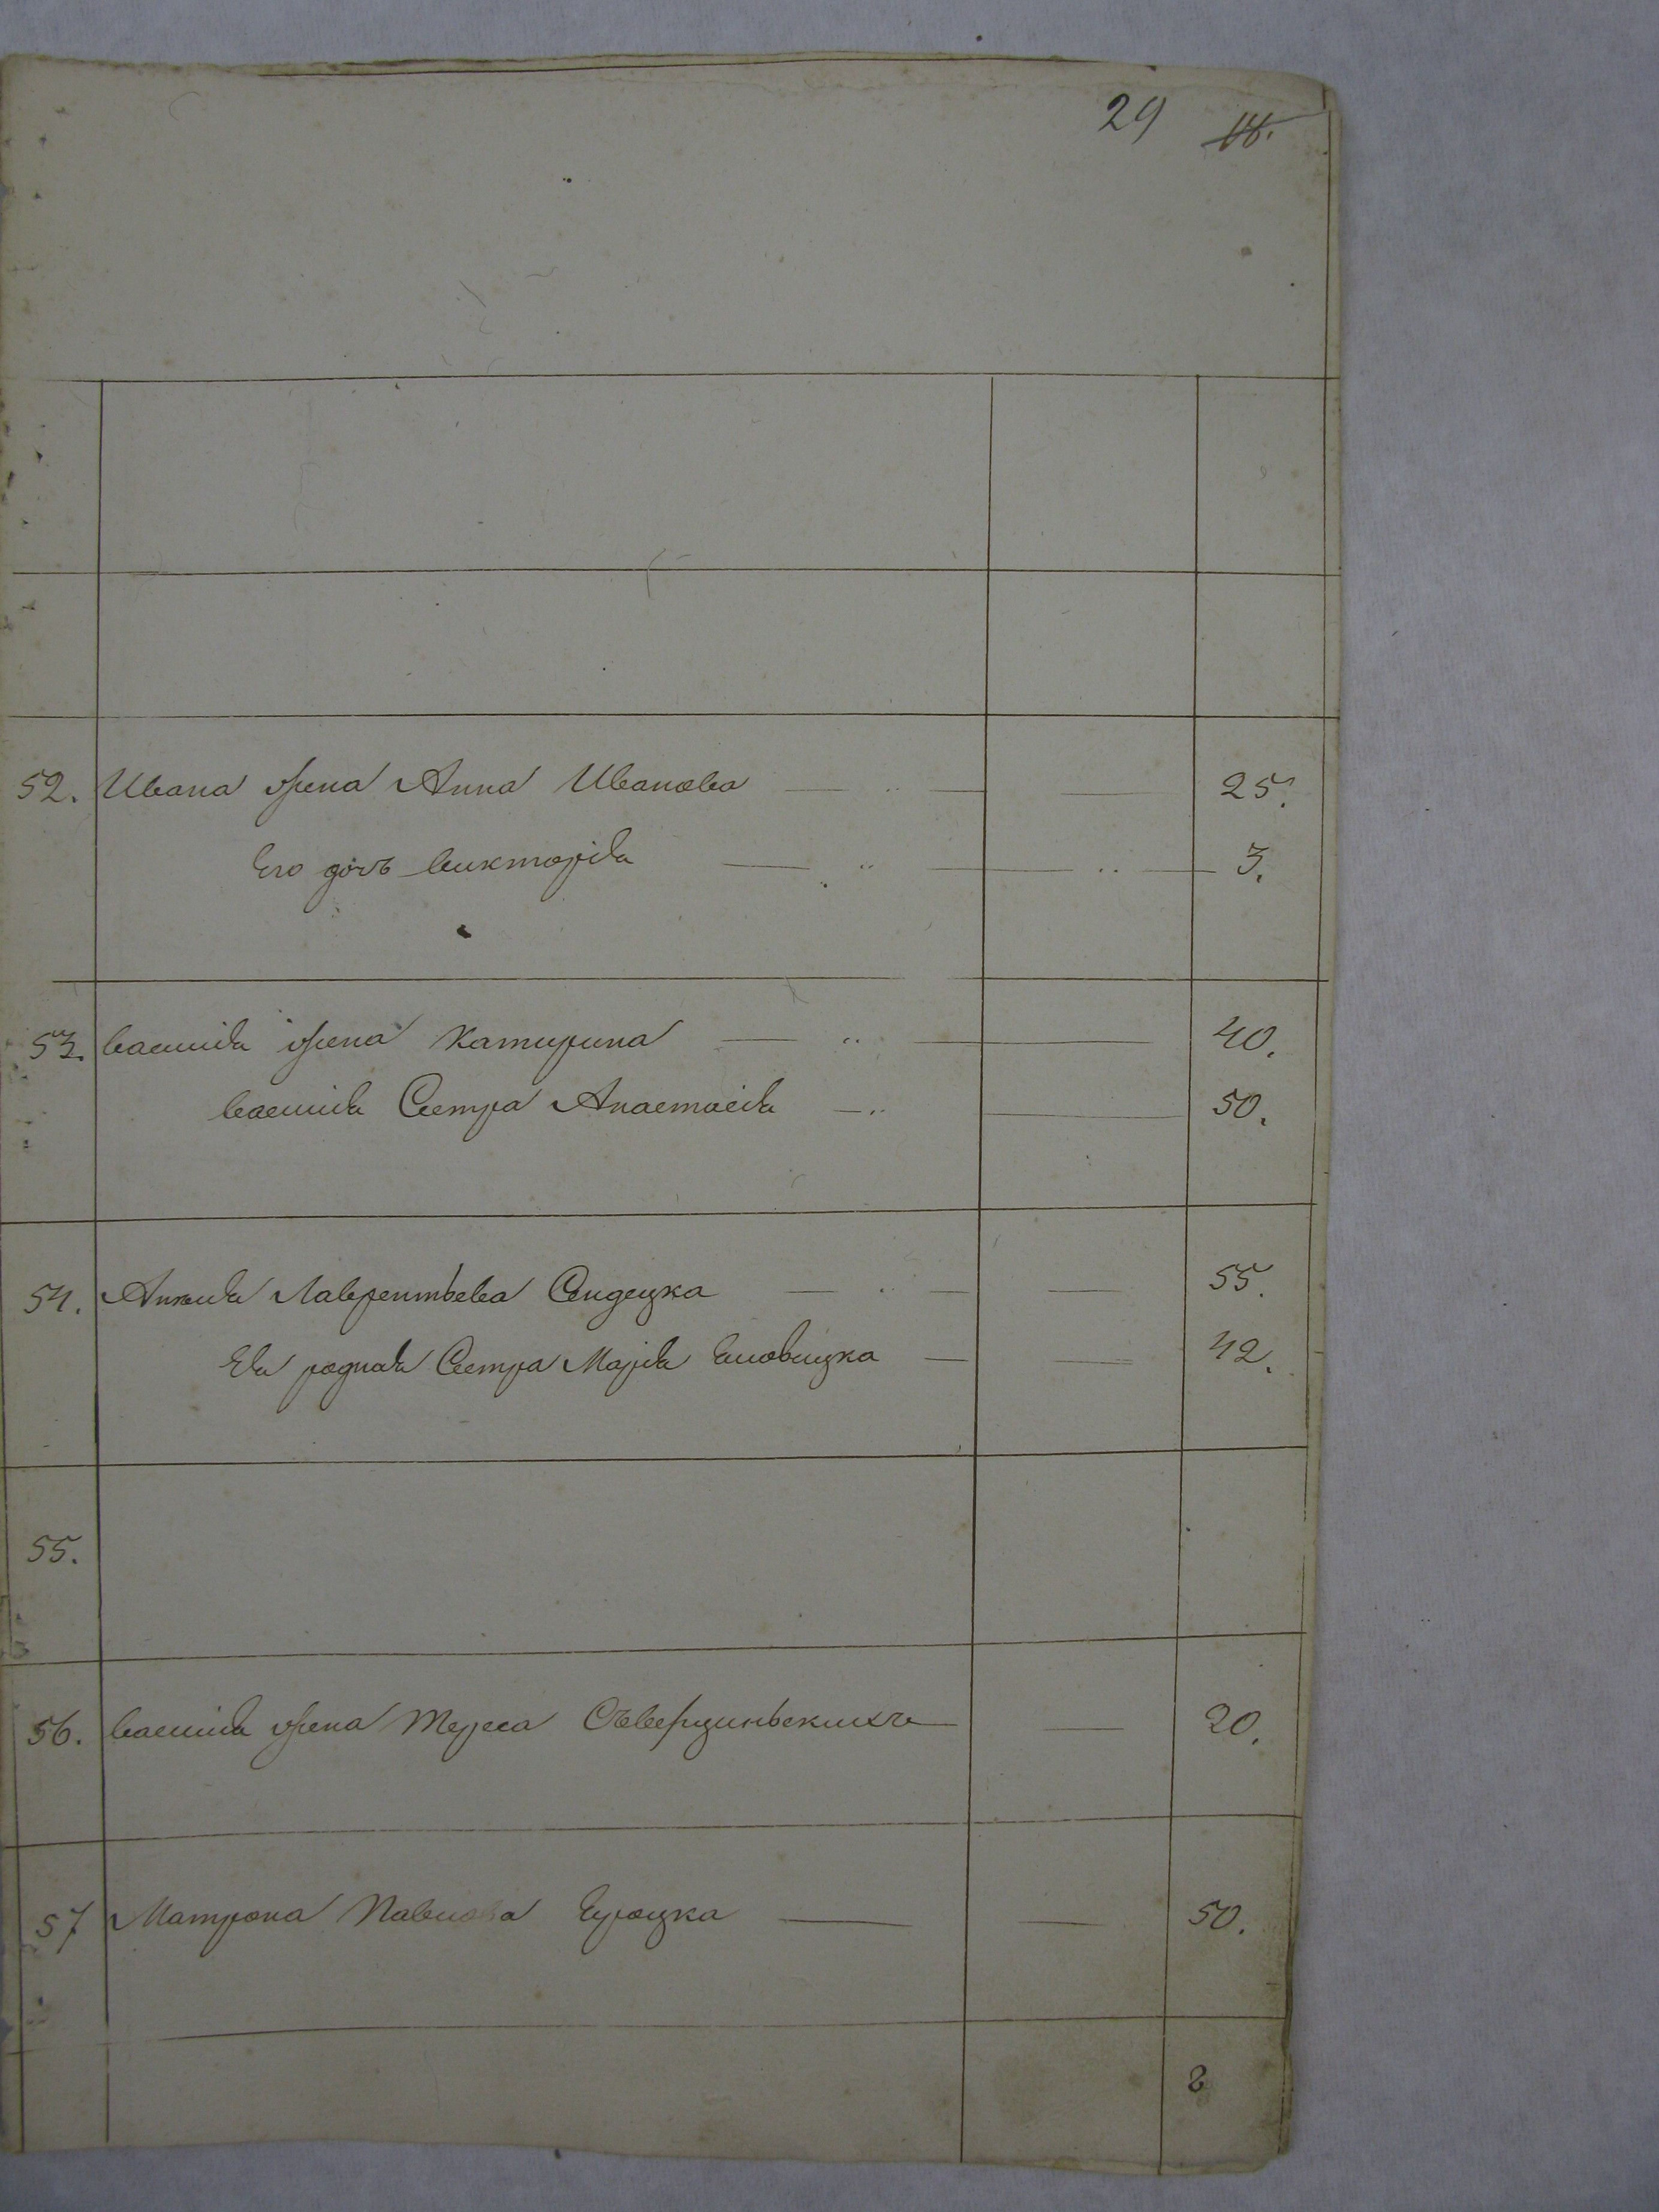 29 18.
52. Ивана жена Анна Иванова — „ — — 25.
Его дочь Викторія — „ — „ — 3.
53. Василія жена Катирина — „ — 40.
Василія Сестра Анастасія — „ — 50.
54. Анъеля Лаврентьева Сендецка — „ — — 55.
Ея родная Сестра Марія Еловицка — — 42.
55.
56. Василія жена Тереса — 20.
57 Матрона Павлова — — 50.
8